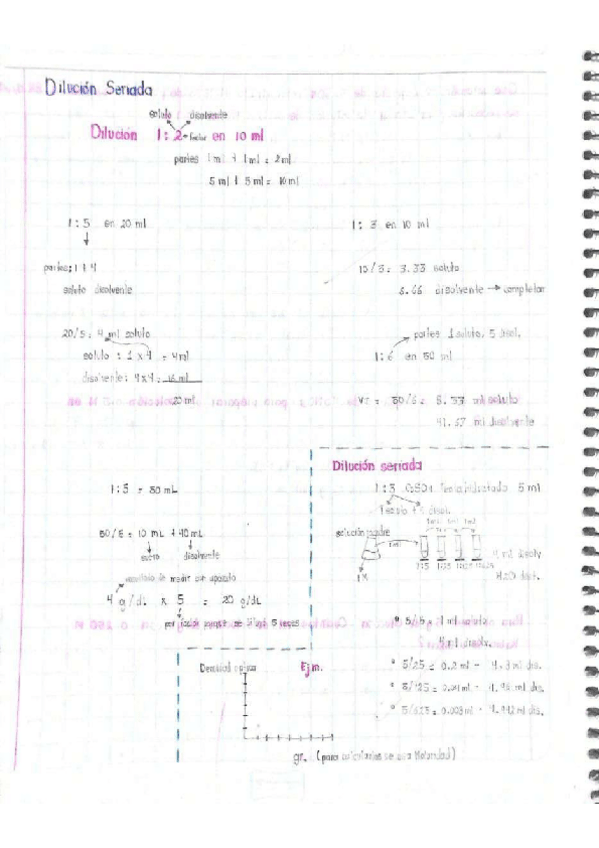 Dilución Seriada
soluto disolvente
Dilución 1:2 factor en 10 ml
partes 1 ml + 1 ml = 2 ml
5 ml + 5 ml = 10 ml
1:5 en 20 ml
partes: 1 + 4
soluto disolvente
20/5 = 4 ml soluto
soluto : 1 x 4 = 4 ml
disolvente: 4x4 = 16 ml
20 ml
1: 3 en 10 ml
10/3 = 3.33 soluto
6.66 disolvente → completar
partes 1 soluto, 5 disol.
1:6 en 50 ml
50/6 = 8.33 ml soluto
41.67 ml disolvente
1:5 = 50 mL
50/5 = 10 mL + 40 mL
suero disolvente
resultado de medir con aparato
4 g/dL x 5 = 20 g/dL
por factor porque se diluyó 5 veces
Dilución seriada
5 ml
1 soluto + 4 disol.
1ml 1ml 1ml
solución madre
1ml
1:5
4 ml disolv
H2O dest.
1X
5/5 = 1 ml soluto
4 ml disolv.
5/25 = 0.2 ml - 4.8 ml dis.
5/125 = 0.04 ml - 4.96 ml dis.
5/625 = 0.008 ml - 4.992 ml dis.
Densidad óptica
Ejm.
gr. (para calcularlos se usa Molaridad)